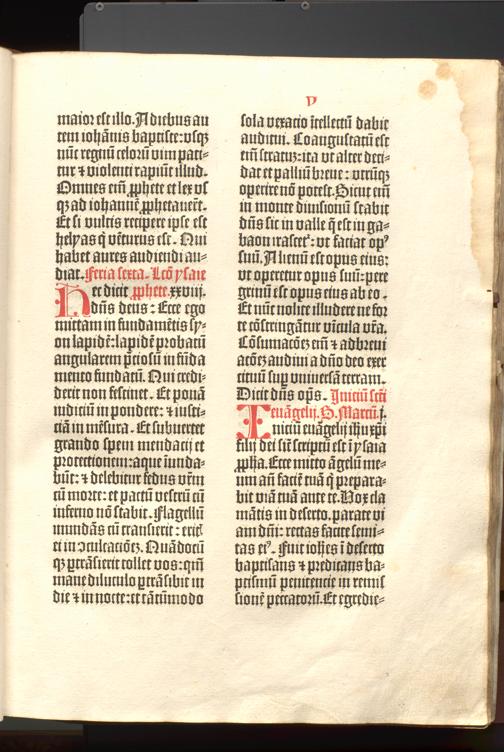 v
maior est illo. A diebus au
tem ioh̄anis baptiste: vsq̄
nūc regnū celoꝝ vim pati⸗
tur ⁊ violenti rapiūt illud.
Omnes eīn ꝓphete et lex vs
q̄ ad iohannē ꝓphetauert̄.
Et si vultis recipere ipse est
helyas q̄ vēturus est. Qui
habet aures audiendi au⸗
diat. Feria sexta. Lcō ysaie
Hec dicit ꝓphete. xxviij.
dn̄s deus: Ecce ego
mittam in fundamētis sy⸗
on lapidē: lapidē probatū
angularem p̄ciosū in fūda
mento fundatū. Qui credi⸗
derit non festinet. Et ponā
iudiciū in pondere: ⁊ iusti⸗
ciā in mēsura. Et subuertet
grando spem mendacij et
protectionem: aque īunda⸗
būt: ⁊ delebitur fedus vr̄m
cū morte: et pactū vestrū cū
inferno nō stabit. Flagellū
inundās cū transierit: erit̄
ei in ꝯculcationē. Quādocū
q̄ ptrāsierit tollet vos: qm̄
mane diluculo ptrāsibit in
die ⁊ in nocte: et tātūmodo
sola vexatio ītellectū dabit
auditui. Coangustatū est
eīn stratū: ita vt alter deci⸗
dat et palliū breue: vtrūq̄
operire nō potest. Sicut eīn
in monte diuisionū stabit
dn̄s sic in valle q̄ est in ga⸗
baon irascet᷑: vt faciat opꝰ
suū. Alienū est opus eius:
vt operetur opus suū: pere
grinū est opus eius ab eo.
Et nūc nolite illudere ne for
te cōstringātur vīcula vr̄a.
Cōsumatōeꝫ eīn ⁊ adbreui
atōeꝫ audiui a dn̄o deo exer
cituū sup vniuersā terram.
Dicit dn̄s op̄s. Iniciū scti
euāgelij. S. Marcū. j.
Iniciū euāgelij ihū xp̄i
filij dei sic̄ scriptū est ī ysaia
ꝓpha. Ecce mitto āgelū me⸗
um an̄ faciē tuā q̄ prepara⸗
bit viā tuā ante te. Vox cla
mātis in deserto. parate vi
am dn̄i: rectas facite semi⸗
tas eiꝰ. Fuit ioh̄es ī deserto
baptisans ⁊ predicans ba⸗
ptismū penitencie in remis
sionē peccatorū. Et egredie⸗